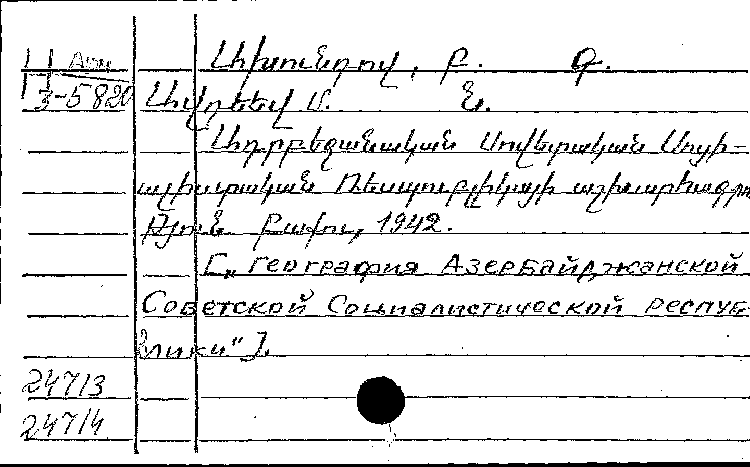 Ախունդով, Բ. Գ.
3-5820 Ավդեեվ Մ. Ն.
Ադրբեջանական Սովետական Սոցի-
ալիստական Ռեսպուբլիկայի աշխարհագրու
թյուն Բաքու, 1942.
[„География Азербайджанской
Советской Социалистической респуб-
лики"].
24713
24714